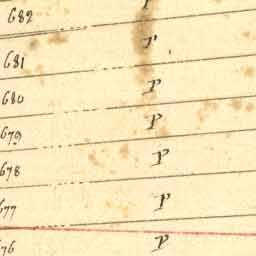 682 P
681 P
680 P
679 P
678 P
677 P
676 P